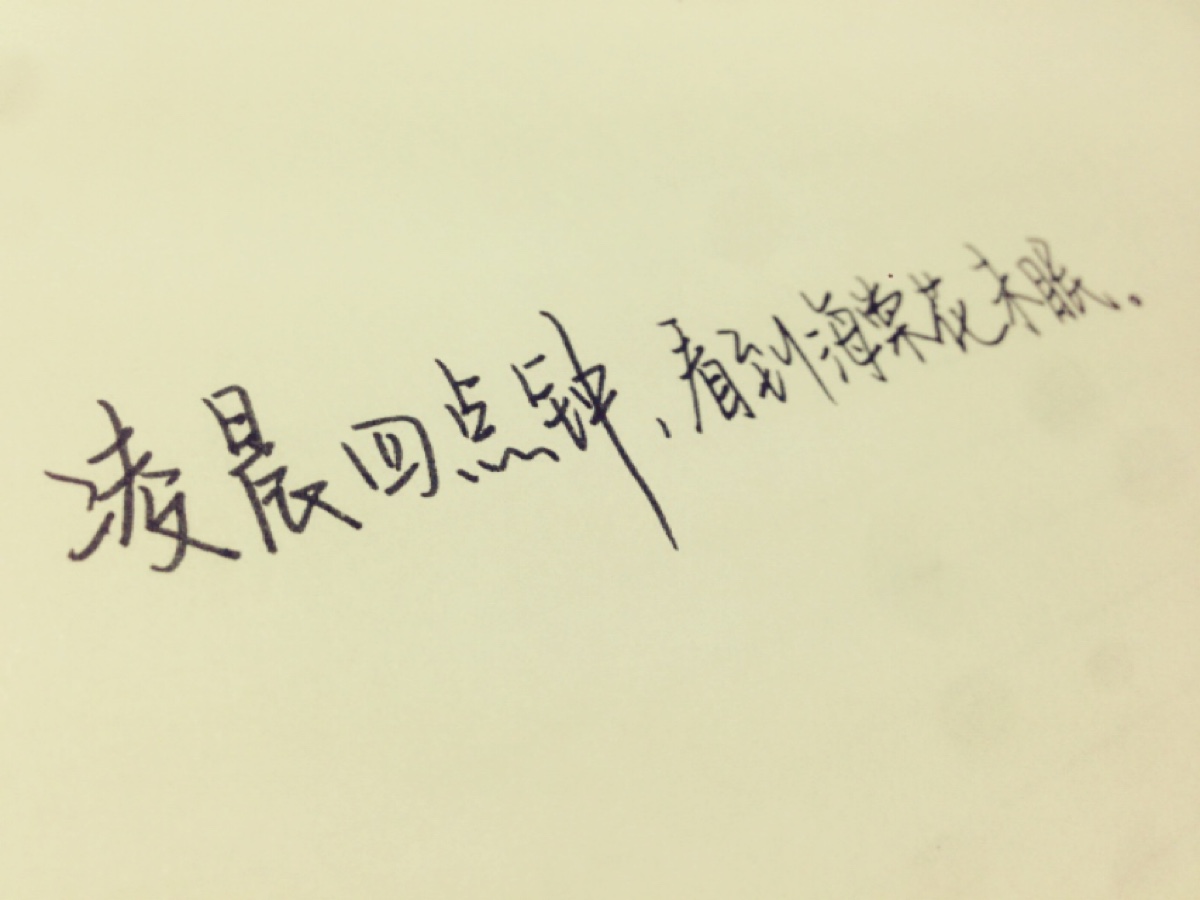 凌晨四点钟，看到海棠花未眠。